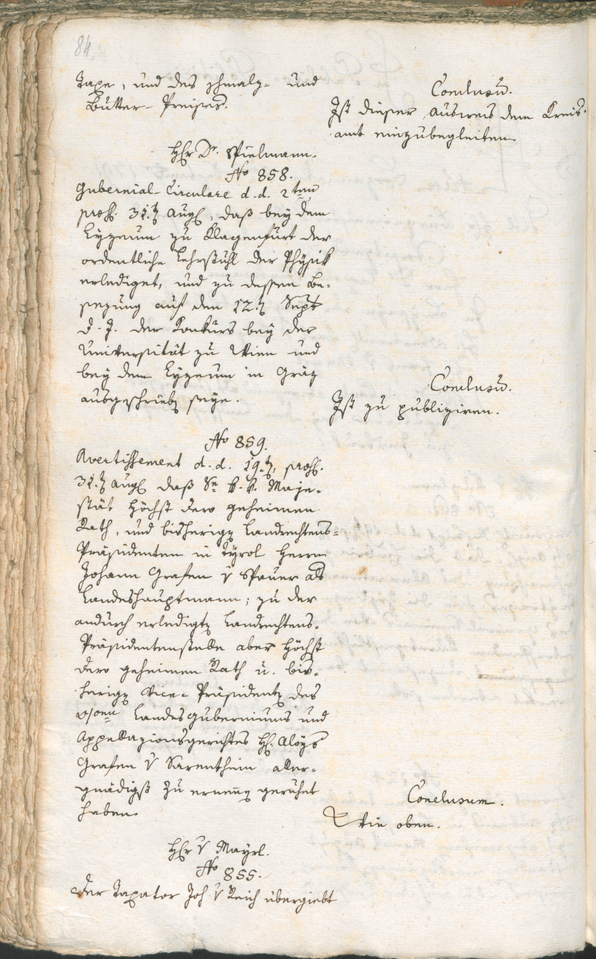 84
Taxe, und des schmalz- und
Butter-Preises.
Conclusu͞.
Ist dieser Ausweis dem Kreis-
amt einzubegleiten.
Hr. Dr. Spielmann.
No 858.
Gubernial-Circulare d. d. 2ten
pros. 31t Aug., daß bey dem
Lyzeum zu Klagenfurt der
ordentliche Lehrstuhl der Physik
erlediget, und zu dessen Be-
sezung auf den 12t Sept
d. J. der Konkurs bey der
Universität zu Wien und
bey dem Lyzeum in Gräz
ausgeschrieb. seye.
Conclusu͞.
Ist zu publiziren.
No 859.
Avertissement d. d. 19t, pros.
31t Aug. daß Se k. k. Maje-
stät höchst dero geheimen
Rath, und bisherigen Landrechtens-
Präsidenten in Tyrol Herrn
Johann Grafen v Spauer als
Landeshauptmann; zu der
andurch erledigten Landrechtens-
Präsidentenstelle aber höchst
dero geheimen Rath u. bis-
herigen Vice-Präsidenten des
Landesguberniums und
Appellazionsgerichtes H. Aloys
Grafen v Sarenthein aller-
gnädigst zu ernennen geruhet
haben.
Conclusum.
Wie oben.
Hr v Mayrl.
No 855.
Der Taxator Joh v Reich übergiebt